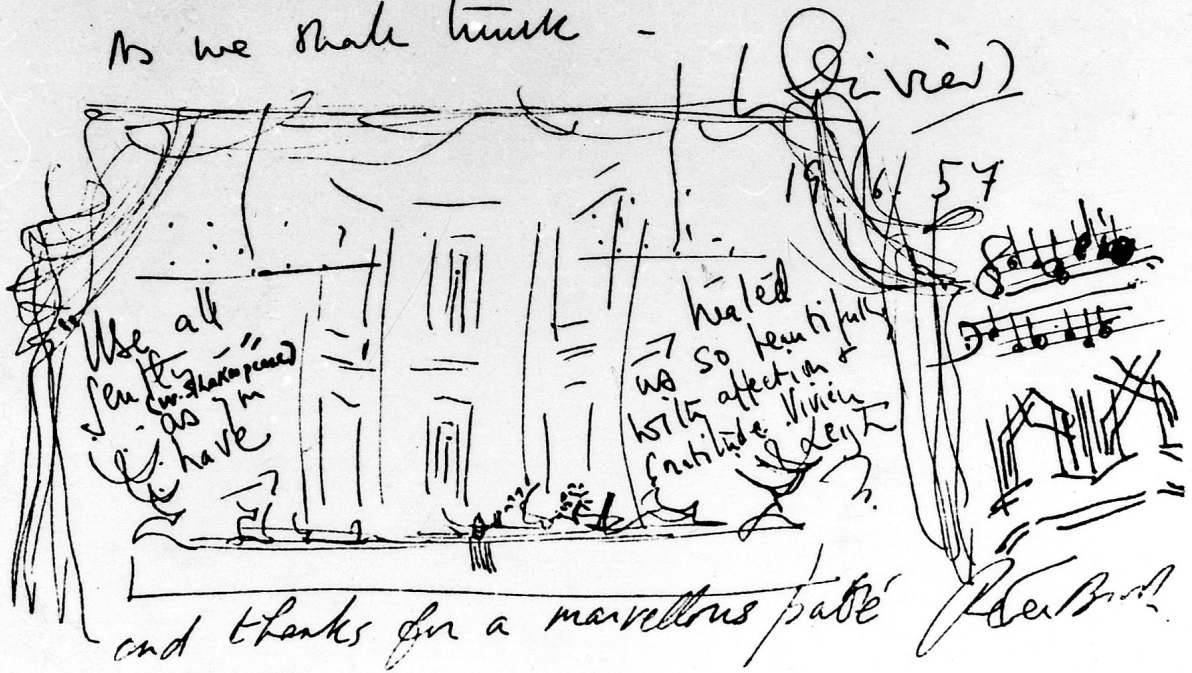 As we shall think -
(Olivier)
19 6 57
Use all
gently"
(W. Shakespeare)
as you
have
treated
us so beautifully
with affection &
Gratitude Vivien
Leigh
and thanks for a marvellous paté Peter Brook